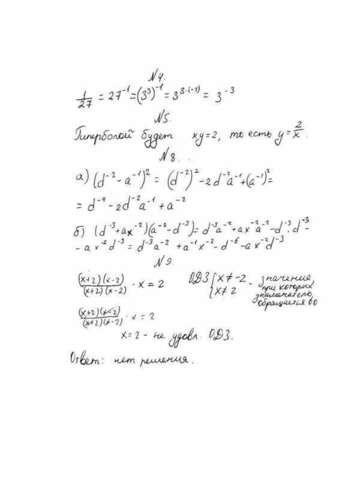 №4.
1/27 = 27⁻¹ = (3³)⁻¹ = 3³·⁽⁻¹⁾ = 3⁻³
№5.
Гиперболой будет xy=2, то есть y=2/x.
№8.
а) (d⁻² - a⁻¹)² = (d⁻²)² - 2d⁻²a⁻¹+(a⁻¹)²=
= d⁻⁴ - 2d⁻²a⁻¹ + a⁻²
б) (d⁻³+ax⁻²)(a⁻²-d⁻³)= d⁻³a⁻²+ax⁻²a⁻²-d⁻³·d⁻³-
- ax⁻²d⁻³ = d⁻³a⁻² + a⁻¹x⁻² - d⁻⁶ - ax⁻²d⁻³
№9.
(x+2)(x-2)/(x+2)(x-2) · x = 2 ОДЗ { x≠-2 x≠2 - значения, при которых знаменатель обращается в 0
(x+2)(x-2)/(x+2)(x-2) · x = 2
x=2 - не удовл. ОДЗ.
Ответ: нет решения.